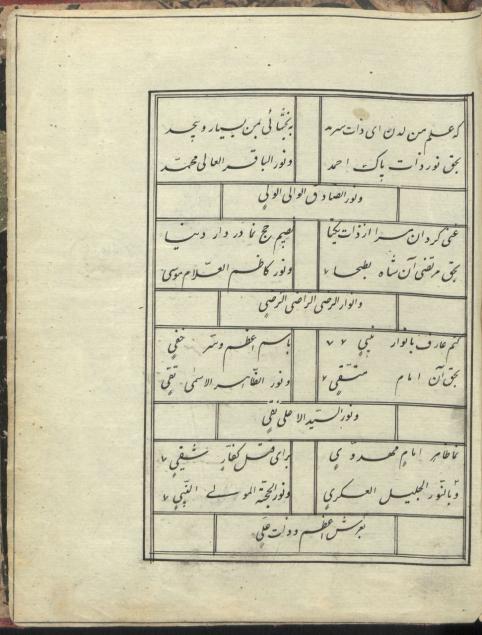 که علم من لدن ای ذات سرمد به بخشائی بمن بسیار و بیحد
بحق نور ذات پاک احمد و نور الباقر العالی محمد
و نور الصادق الوالی الولی
غنی گردان مرا از ذات یکتا نصیبم حج نما در دار دنیا
بحق مرتضی آن شاه بطحا و نور کاظم العلام موسی
و انوار الرضی الراضی الرضی
کنم عارف بانوار نبی باسم اعظم و سر خفی
بحق آن امام متقی و نور الطاهر الاسمی تقی
و نور السید الاعلی نقی
نما ظاهر امام مهدوی برای قتل کفار شقی
و بالنور الجلیل العسکری و نور الحجة المولی النبی
بعرش اعظم و ذات علی